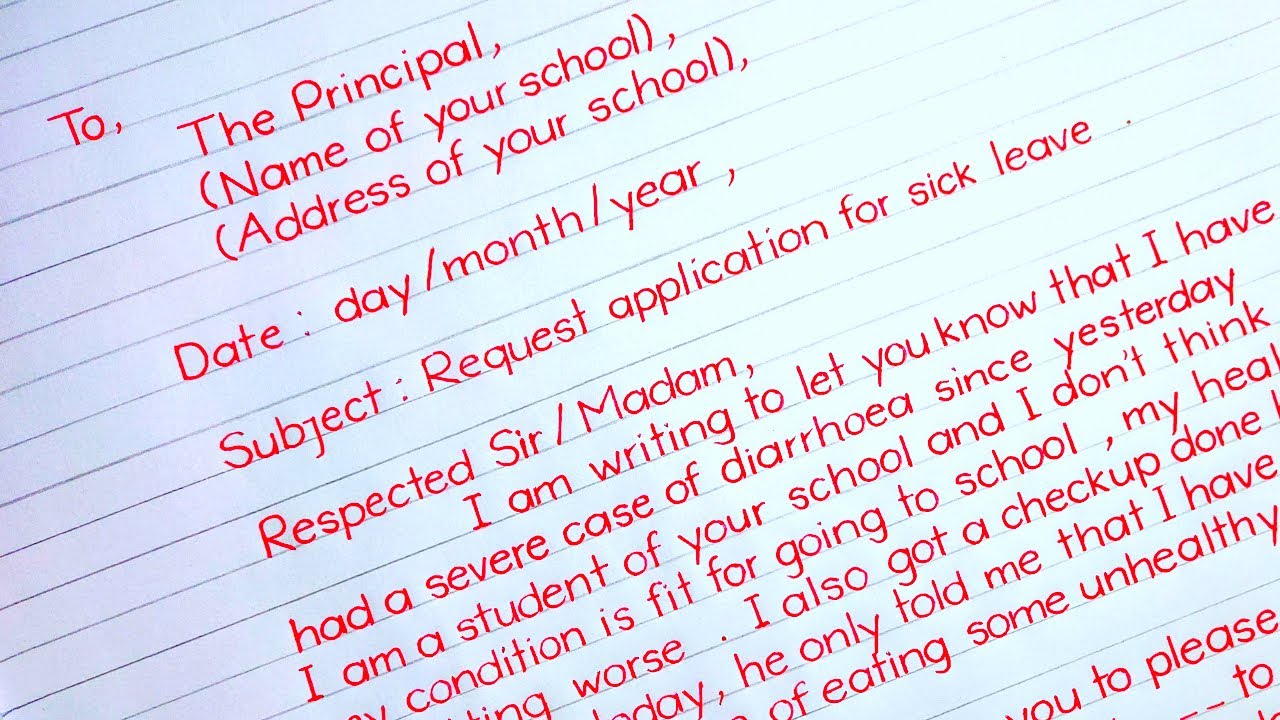 To,
The Principal,
(Name of your school),
(Address of your school),
Date : day/month/year ,
Subject : Request application for sick leave .
Respected Sir/Madam,
I am writing to let you know that I have
had a severe case of diarrhoea since yesterday
I am a student of your school and I don't think
condition is fit for going to school , my
worse . I also got a checkup done
, he only told me that I have
of eating some unhealthy
you to please
to